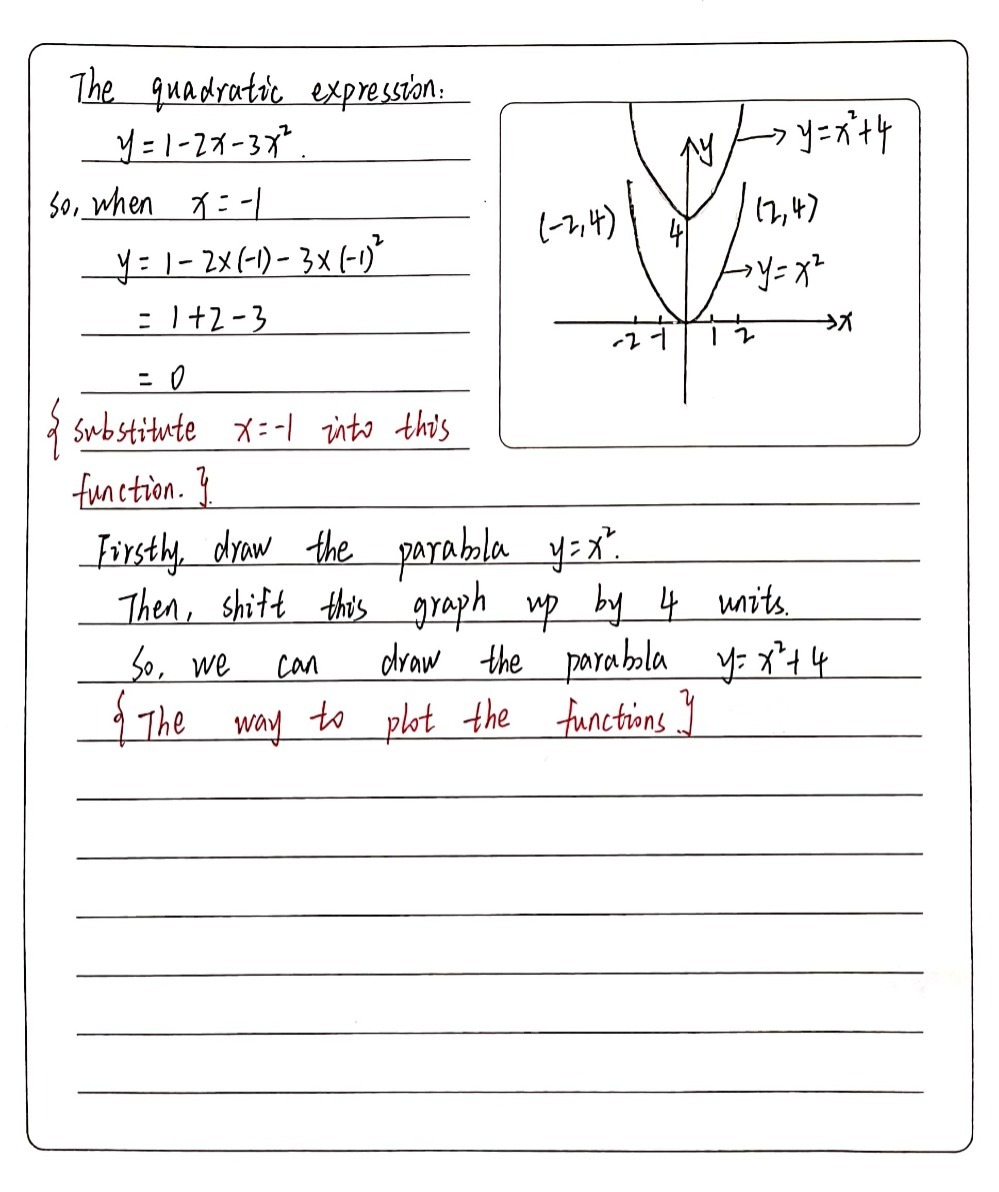 The quadratic expression:
y = 1 - 2x - 3x².
So, when x = -1
y = 1 - 2×(-1) - 3×(-1)²
= 1 + 2 - 3
= 0
{ substitute x = -1 into this
function. }.
y
→ y = x² + 4
(-2, 4)
4
(2, 4)
→ y = x²
x
-2 -1 1 2
Firstly, draw the parabola y = x².
Then, shift this graph up by 4 units.
So, we can draw the parabola y = x² + 4
{ The way to plot the functions. }